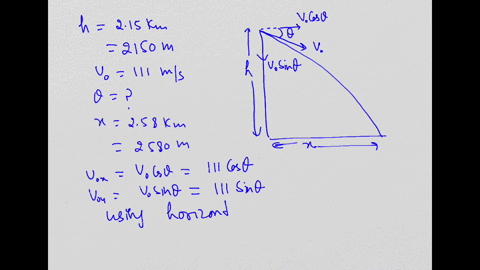 h = 2.15 Km
= 2150 m
V₀ = 111 m/s
θ = ?
x = 2.58 Km
= 2580 m
V₀ₓ = V₀ Cosθ = 111 Cosθ
V₀y = V₀ Sinθ = 111 Sinθ
using horizont
V₀ Cosθ
θ
V₀
V₀ Sinθ
h
x